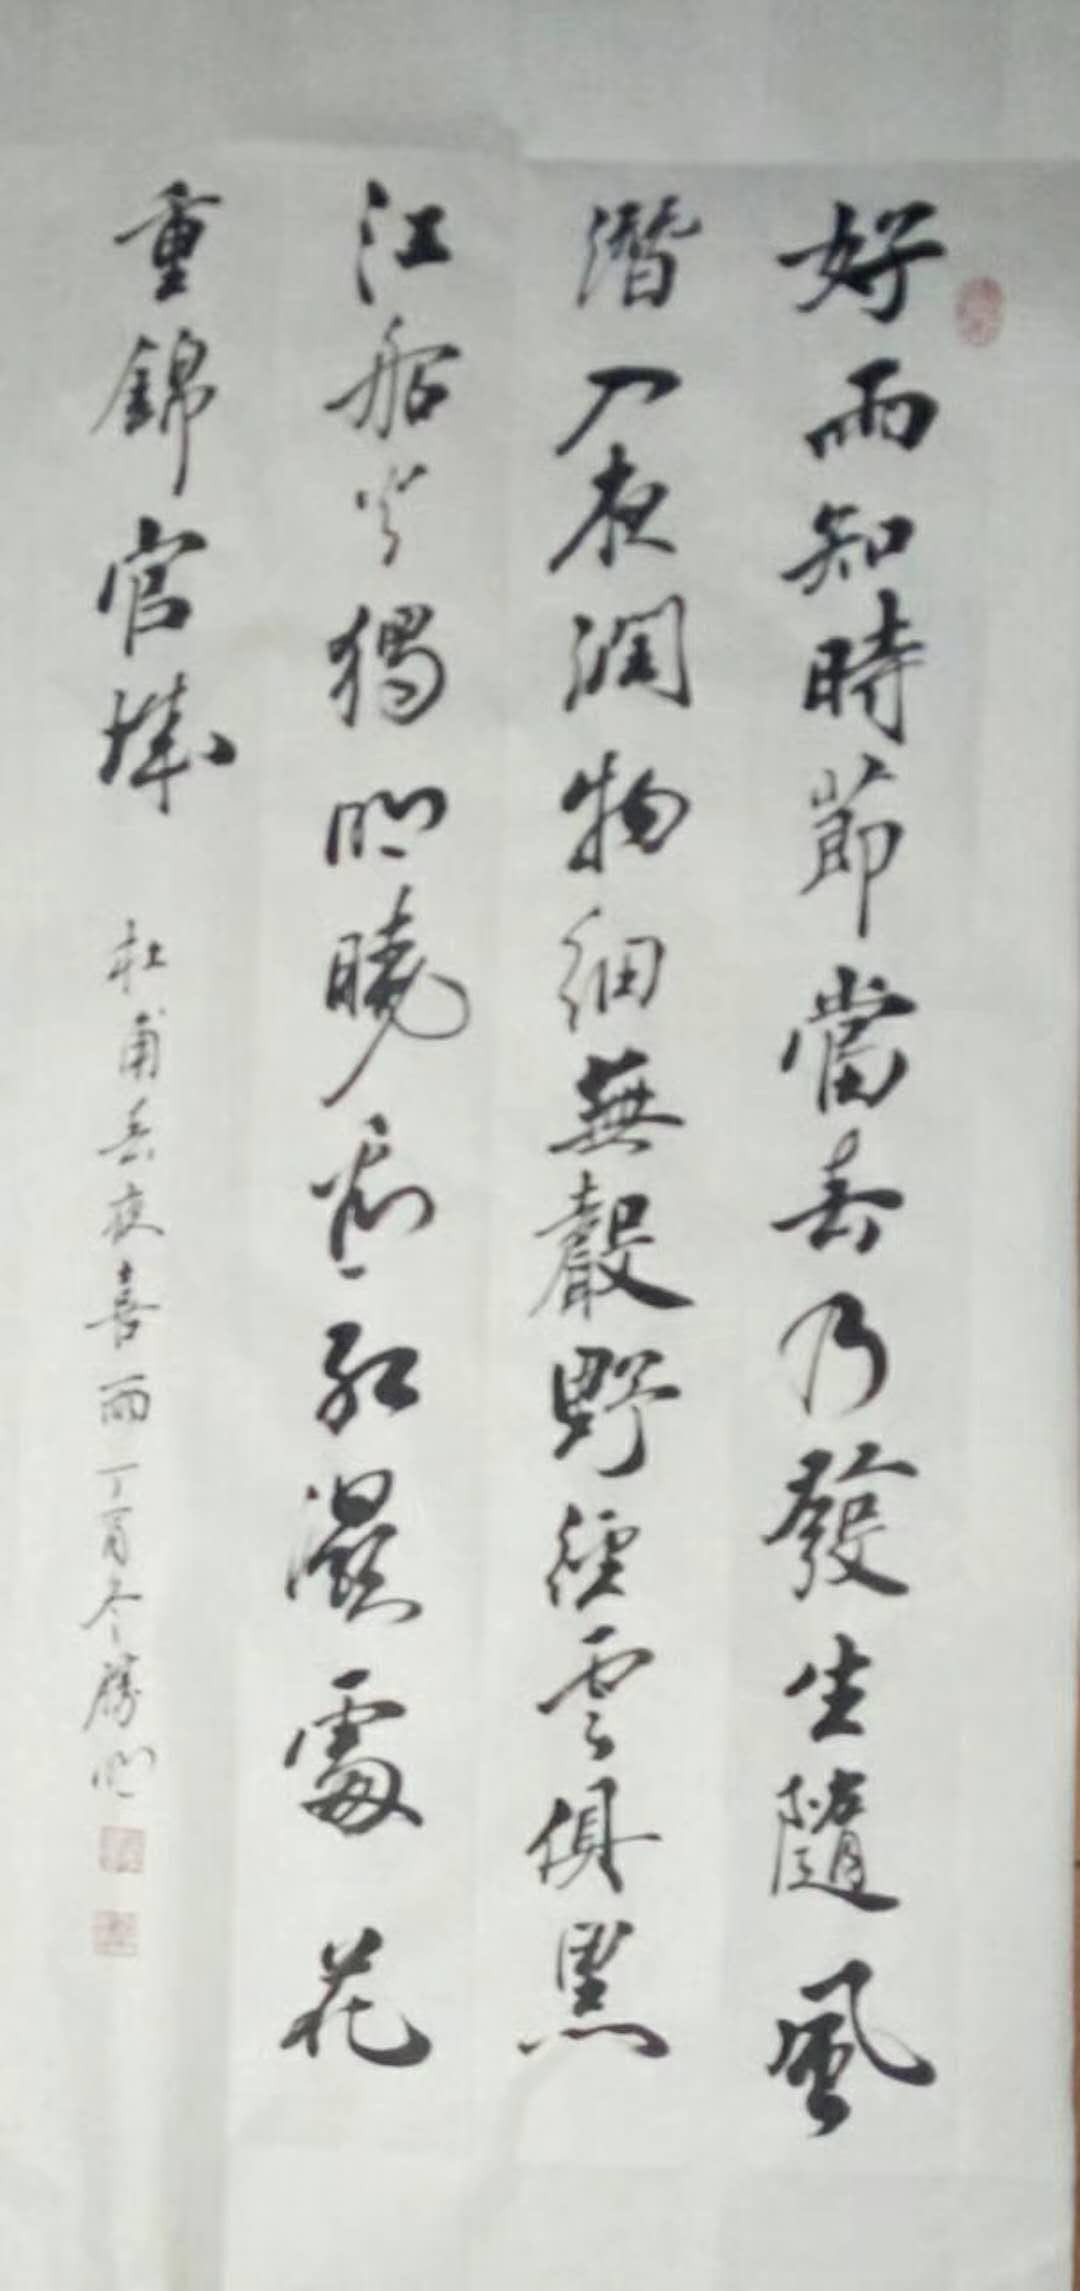 好雨知時節當春乃發生隨風
潛入夜潤物細無聲野徑雲俱黑
江船火獨明曉看紅濕處花
重錦官城
杜甫春夜喜雨丁酉冬勝明